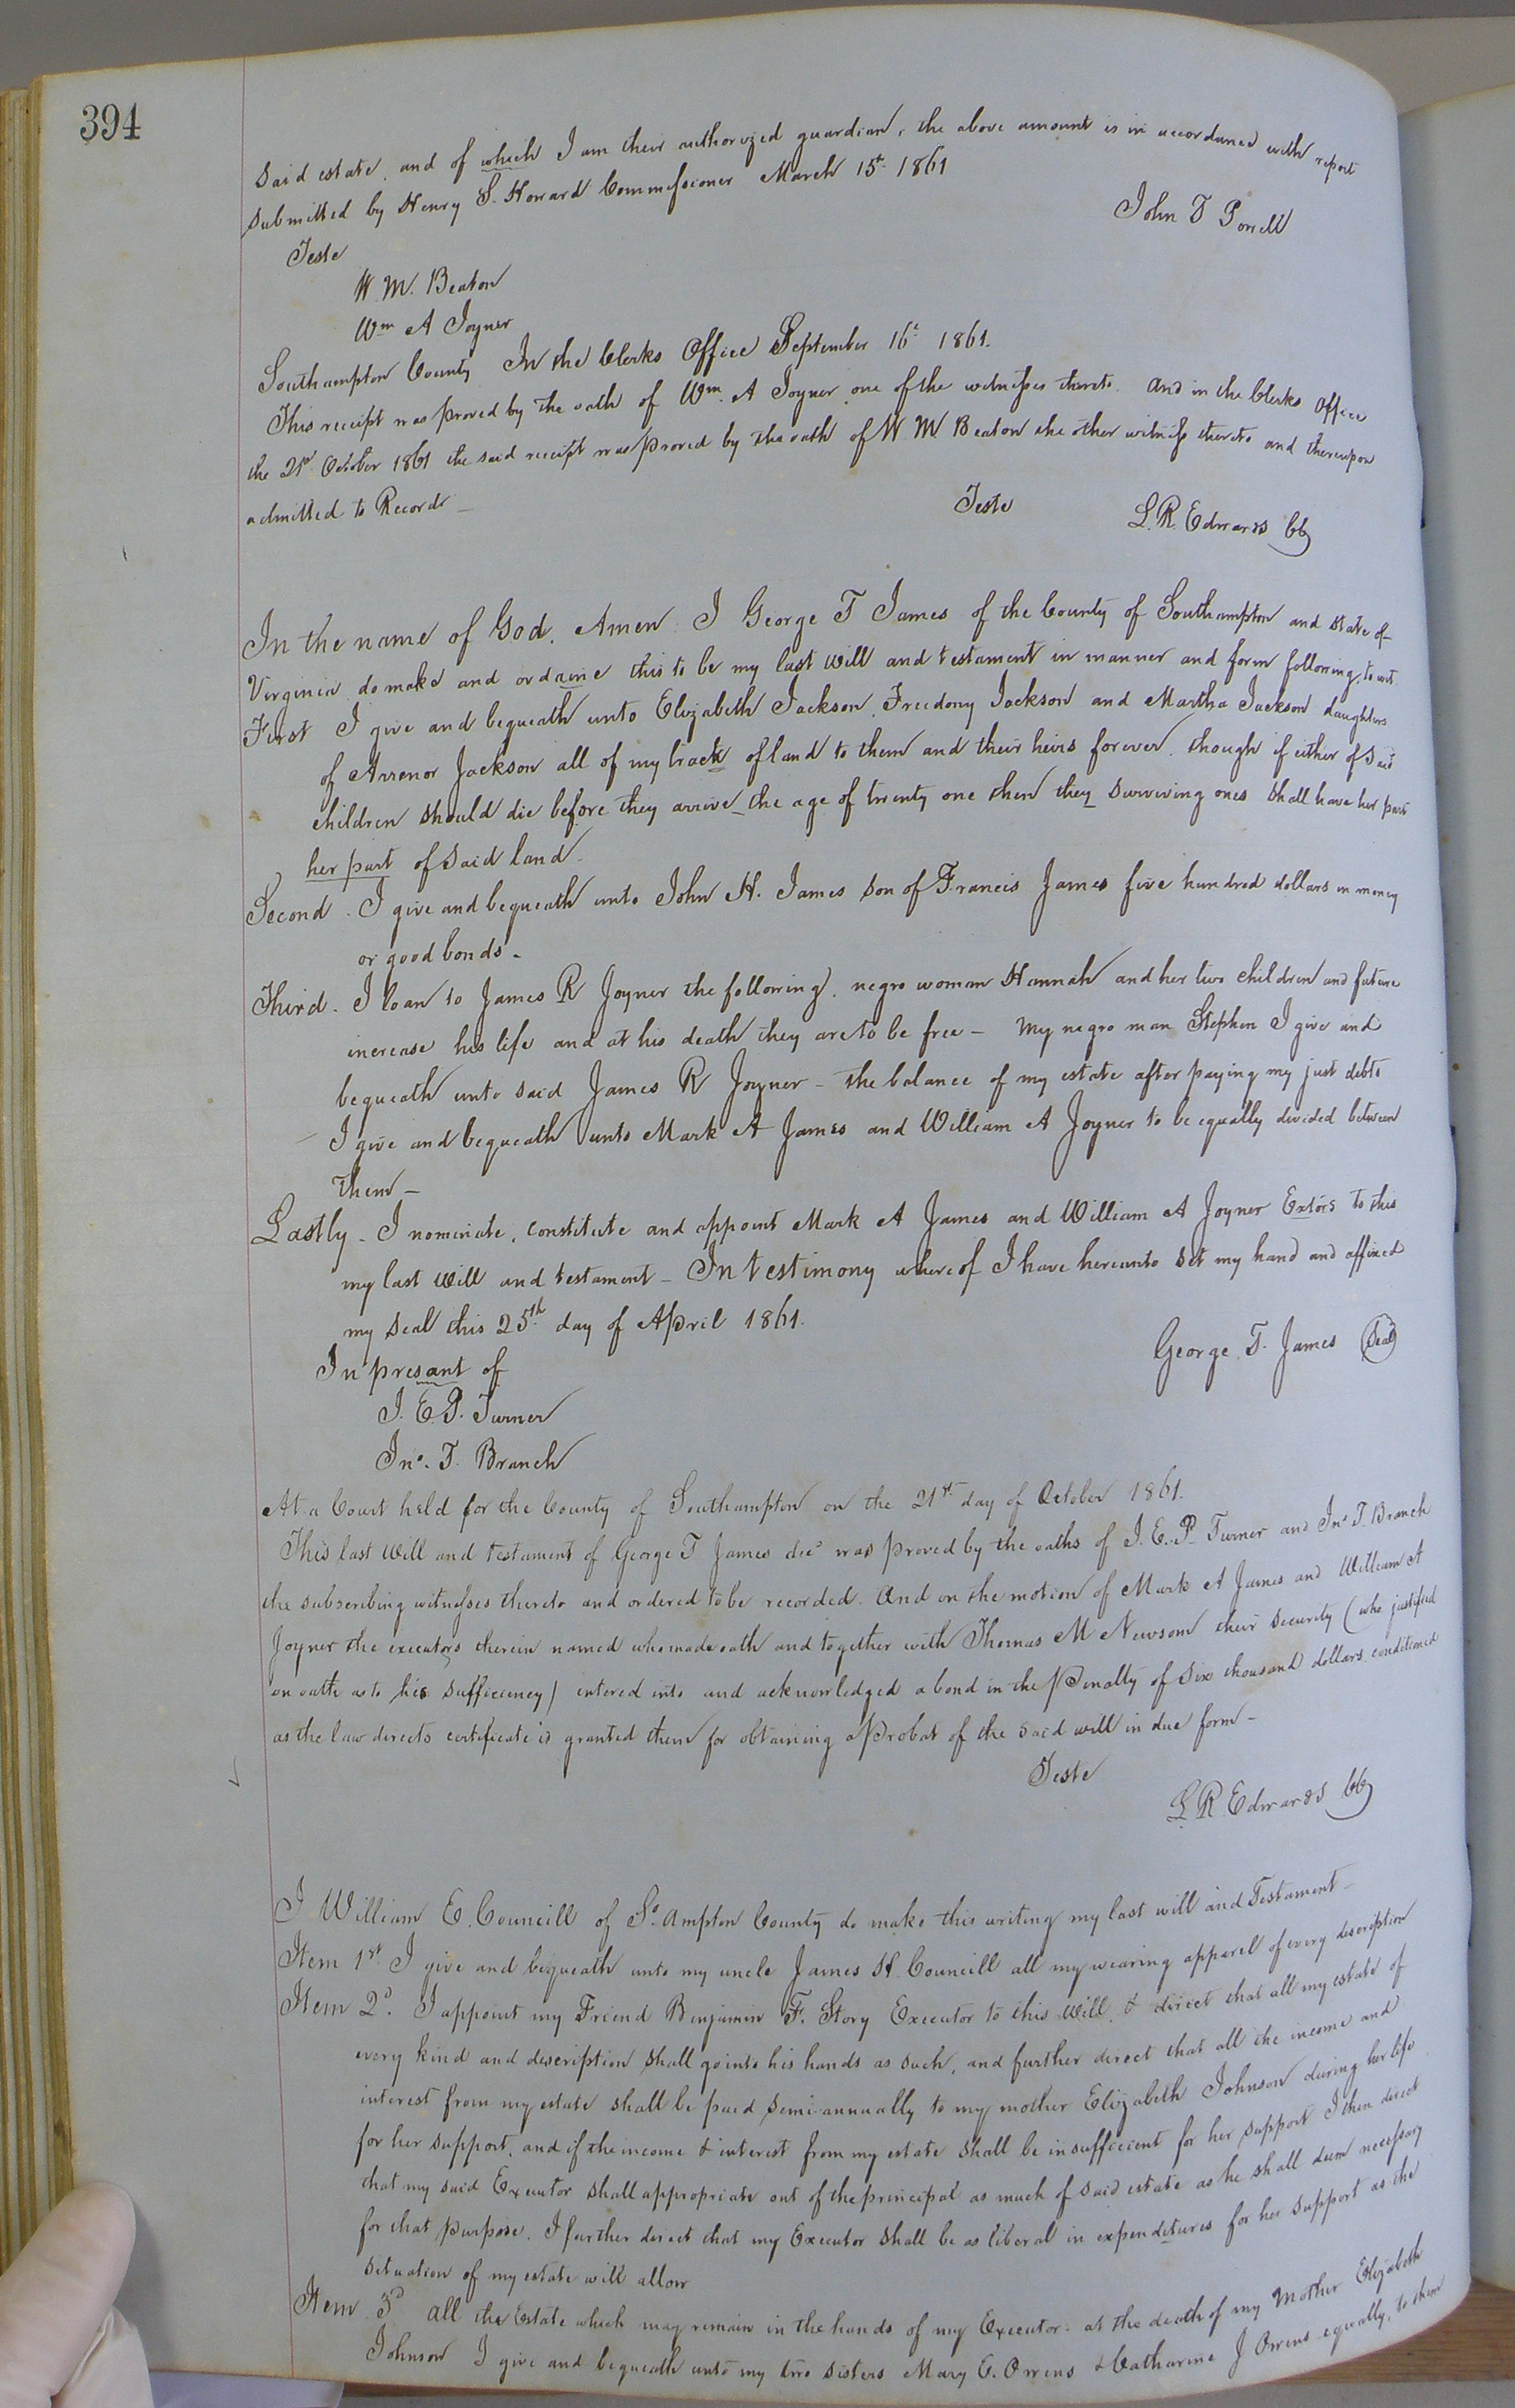 394
said estate, and of which I am their authorized guardian, the above amount is in accordance with report
submitted by Henry S. Howard Commissioner March 15th 1861
John T Powell
Teste
W. M. Beaton
Wm A Joyner
Southampton County In the Clerks Office September 16th 1861.
This receipt was proved by the oath of Wm. A Joyner one of the witnesses thereto. And in the Clerks Office
the 21st October 1861 the said receipt was proved by the oath of W. M. Beaton the other witness thereto and thereupon
admitted to Record
Teste L. R. Edwards CC
In the name of God, Amen. I George T James of the County of Southampton and state of
Virginia do make and ordaine this to be my last will and testament in manner and form following, to wit.
First I give and bequeath unto Elizabeth Jackson, Freedony Jackson and Martha Jackson daughters
of Arrenor Jackson all of my track of land to them and their heirs forever. though if either of said
children should die before they arrive the age of twenty one then they surviving ones shall have her part
her part of said land.
Second. I give and bequeath unto John H. James son of Francis James five hundred dollars in money
or good bonds.
Third. I loan to James R Joyner the following, negro woman Hannah and her two children and future
increase his life and at his death they are to be free - My negro man Stephen I give and
bequeath unto said James R Joyner - the balance of my estate after paying my just debts
I give and bequeath unto Mark A James and William A Joyner to be equally divided between
them -
Lastly - I nominate, constitute and appoint Mark A James and William A Joyner Extors to this
my last will and testament - In testimony whereof I have hereunto set my hand and affixed
my seal this 25th day of April 1861.
George. T. James (Seal)
In presant of
J. E. P. Turner
Jno. T. Branch
At a Court held for the County of Southampton on the 21st day of October 1861.
This last will and testament of George T James decd was proved by the oaths of J. E. P. Turner and Jno T. Branch
the subscribing witnesses thereto and ordered to be recorded. And on the motion of Mark A James and William A
Joyner the executors therein named who made oath and together with Thomas M Newsom their security (who justified
on oath as to his sufficiency) entered into and acknowledged a bond in the Penalty of six thousand dollars conditioned
as the law directs certificate is granted them for obtaining a Probat of the said will in due form -
Teste
L R. Edwards CC
I William E. Councill of So. Ampton County do make this writing my last will and Testament -
Item 1st. I give and bequeath unto my uncle James H. Councill all my wearing apparel of every description
Item 2d. I appoint my Friend Benjamin F. Story Executor to this will, & direct that all my estate of
every kind and description shall go into his hands as such, and further direct that all the income and
interest from my estate shall be paid semi-annually to my mother Elizabeth Johnson during her life
for her support, and if the income & interest from my estate shall be insufficient for her support I then direct
that my said Executor shall appropriate out of the principal as much of said estate as he shall deem necessary
for that purpose. I further direct that my Executor shall be as liberal in expenditures for her support as the
situation of my estate will allow
Item 3d All the Estate which may remain in the hands of my Executor at the death of my Mother Elizabeth
Johnson I give and bequeath unto my two sisters Mary E. Owens & Catharine J Owens equally, to them